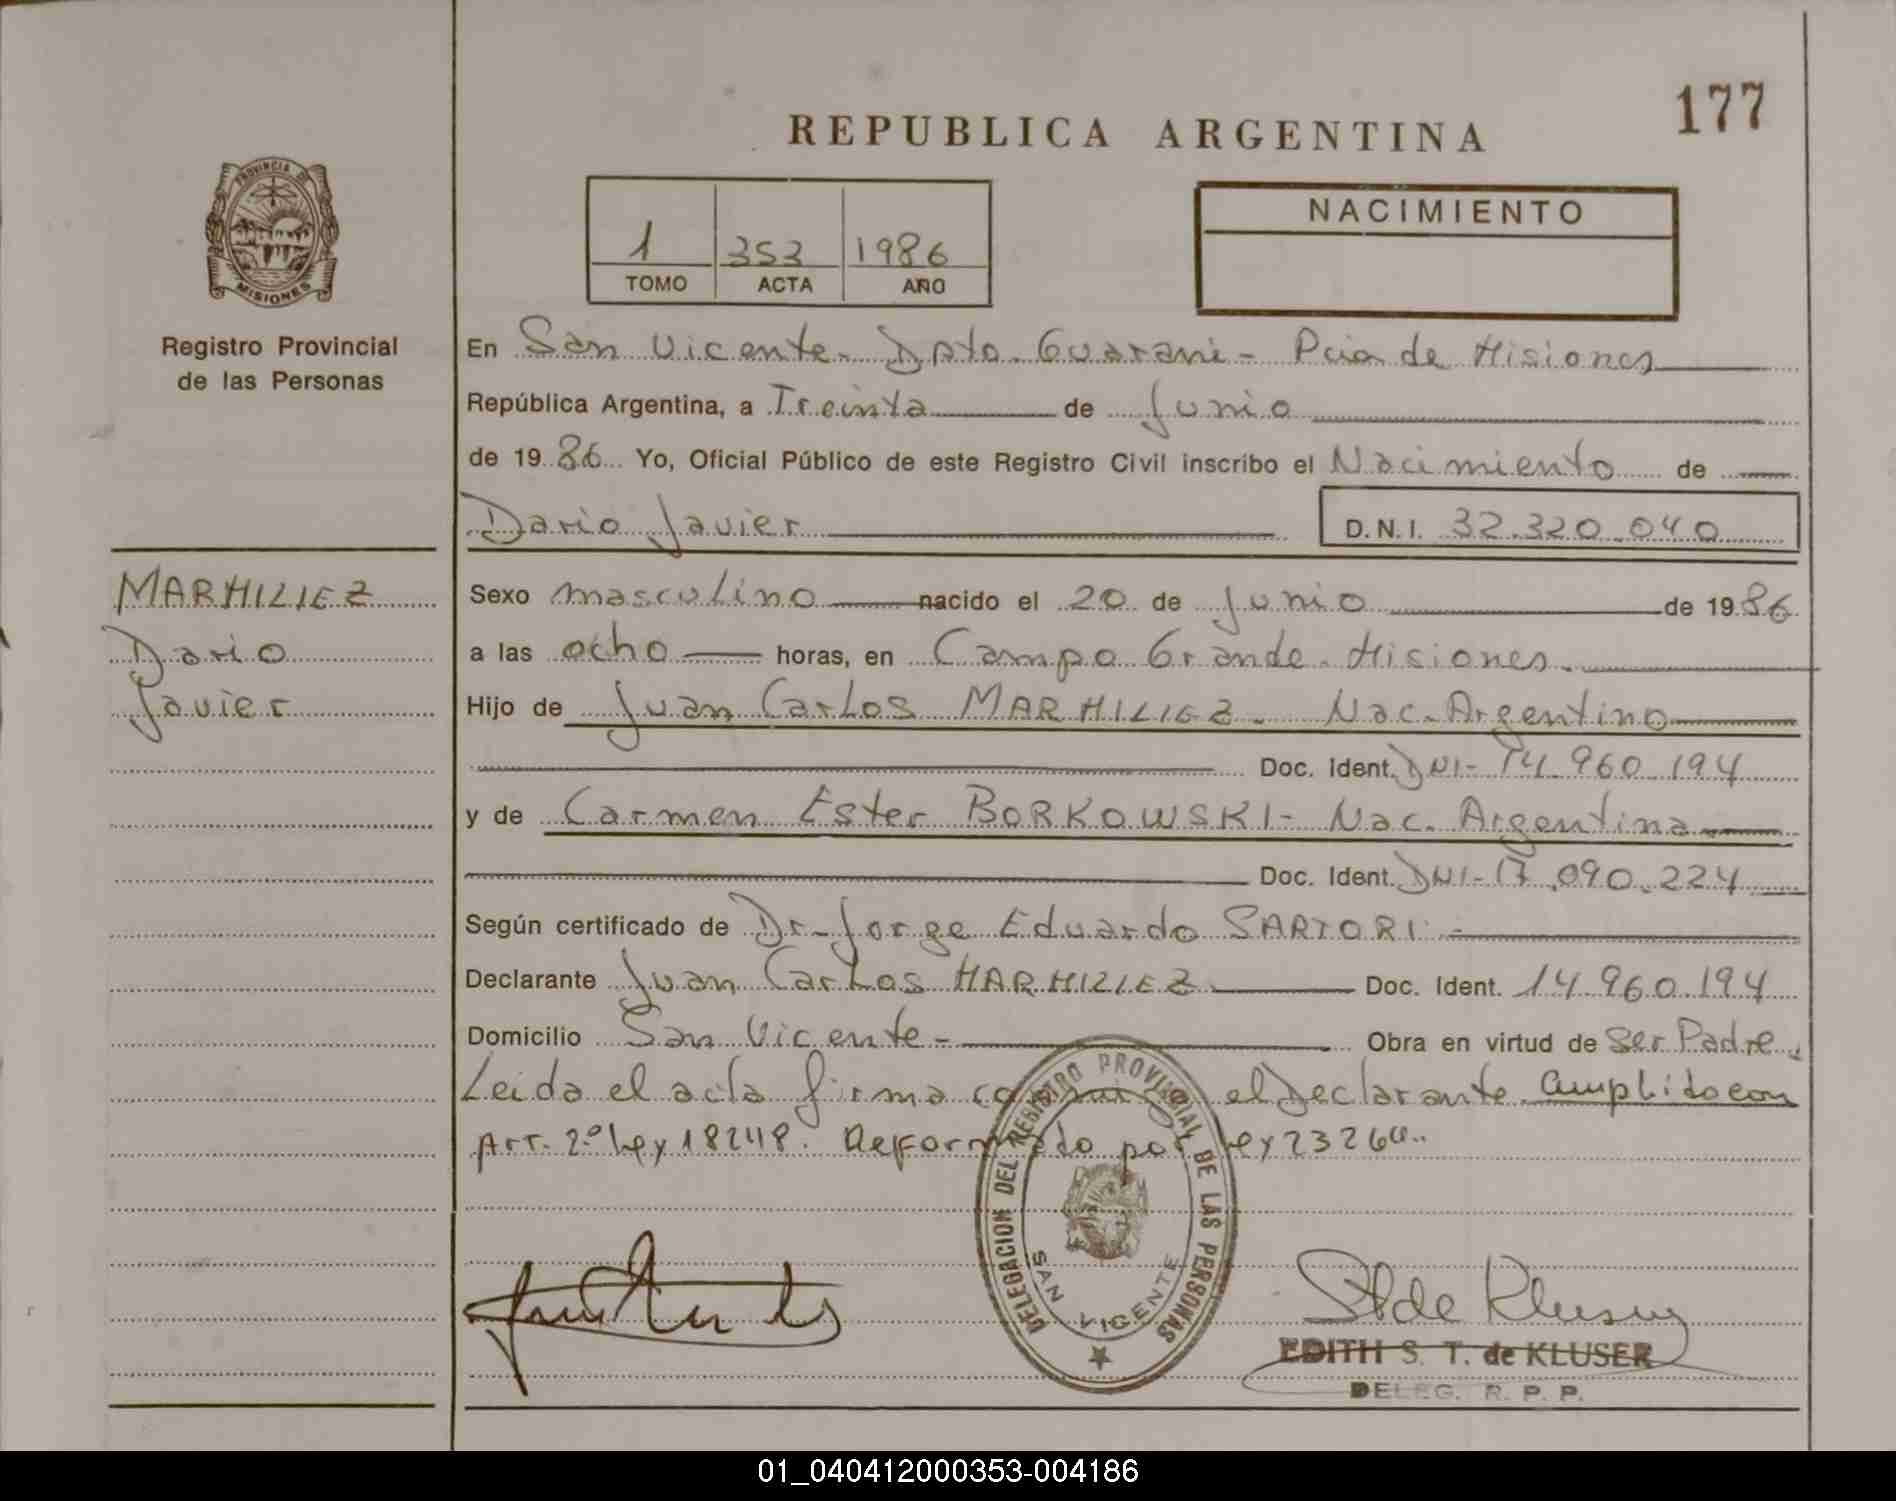 177
REPUBLICA ARGENTINA
PROVINCIA DE
MISIONES
Registro Provincial
de las Personas
1 353 1986
TOMO ACTA AÑO
NACIMIENTO
En San Vicente - Dpto. Guarani - Pcia de Misiones
República Argentina, a Treinta de Junio
de 1986 Yo, Oficial Público de este Registro Civil inscribo el Nacimiento de
Dario Javier D.N.I. 32.320.040
MARHILIEZ
Dario
Javier
Sexo masculino nacido el 20 de Junio de 1986
a las ocho horas, en Campo Grande - Misiones.
Hijo de Juan Carlos MARHILIEZ - Nac. Argentino
Doc. Ident. DNI - 14.960.194
y de Carmen Ester BORKOWSKI - Nac. Argentina
Doc. Ident. DNI - 17.090.224
Según certificado de Dr - Jorge Eduardo SARTORI -
Declarante Juan Carlos MARHILIEZ Doc. Ident. 14.960.194
Domicilio San Vicente - Obra en virtud de Ser Padre.
Leida el acta firma conmigo el Declarante Cumplido con
Art. 2º Ley 18248. Reformado por Ley 23264.
DELEGACION DEL REGISTRO PROVINCIAL DE LAS PERSONAS
SAN VICENTE
St de Kluser
EDITH S. T. de KLUSER
DELEG. R. P. P.
01_040412000353-004186